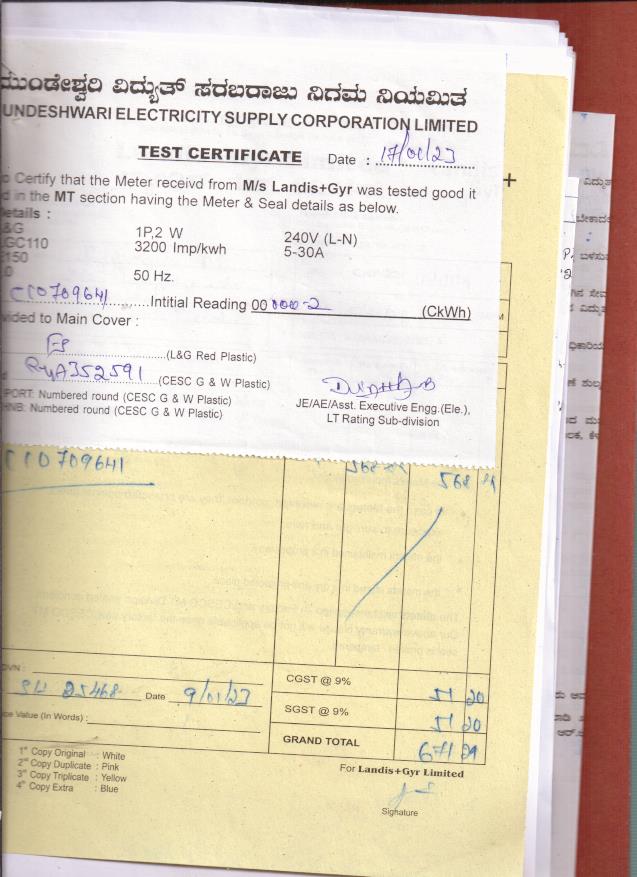 ಮುಂಡೇಶ್ವರಿ ವಿದ್ಯುತ್ ಸರಬರಾಜು ನಿಗಮ ನಿಯಮಿತ
UNDESHWARI ELECTRICITY SUPPLY CORPORATION LIMITED
TEST CERTIFICATE Date : 17/01/23
o Certify that the Meter receivd from M/s Landis+Gyr was tested good it
d in the MT section having the Meter & Seal details as below.
etails :
&G 1P,2 W 240V (L-N)
GC110 3200 Imp/kwh 5-30A
150
.0 50 Hz.
CC0709641 Intitial Reading 00 000-2 (CkWh)
vided to Main Cover :
(L&G Red Plastic)
RyA352591 (CESC G & W Plastic)
PORT: Numbered round (CESC G & W Plastic)
HNB: Numbered round (CESC G & W Plastic)
JE/AE/Asst. Executive Engg.(Ele.),
LT Rating Sub-division
CC0709641 568 568
DVN :
CGST @ 9% 51 20
25468 Date 9/01/23
SGST @ 9% 51 20
ce Value (In Words) :
GRAND TOTAL 671 29
1st Copy Original : White
2nd Copy Duplicate : Pink
3rd Copy Triplicate : Yellow
4th Copy Extra : Blue
For Landis+Gyr Limited
Signature